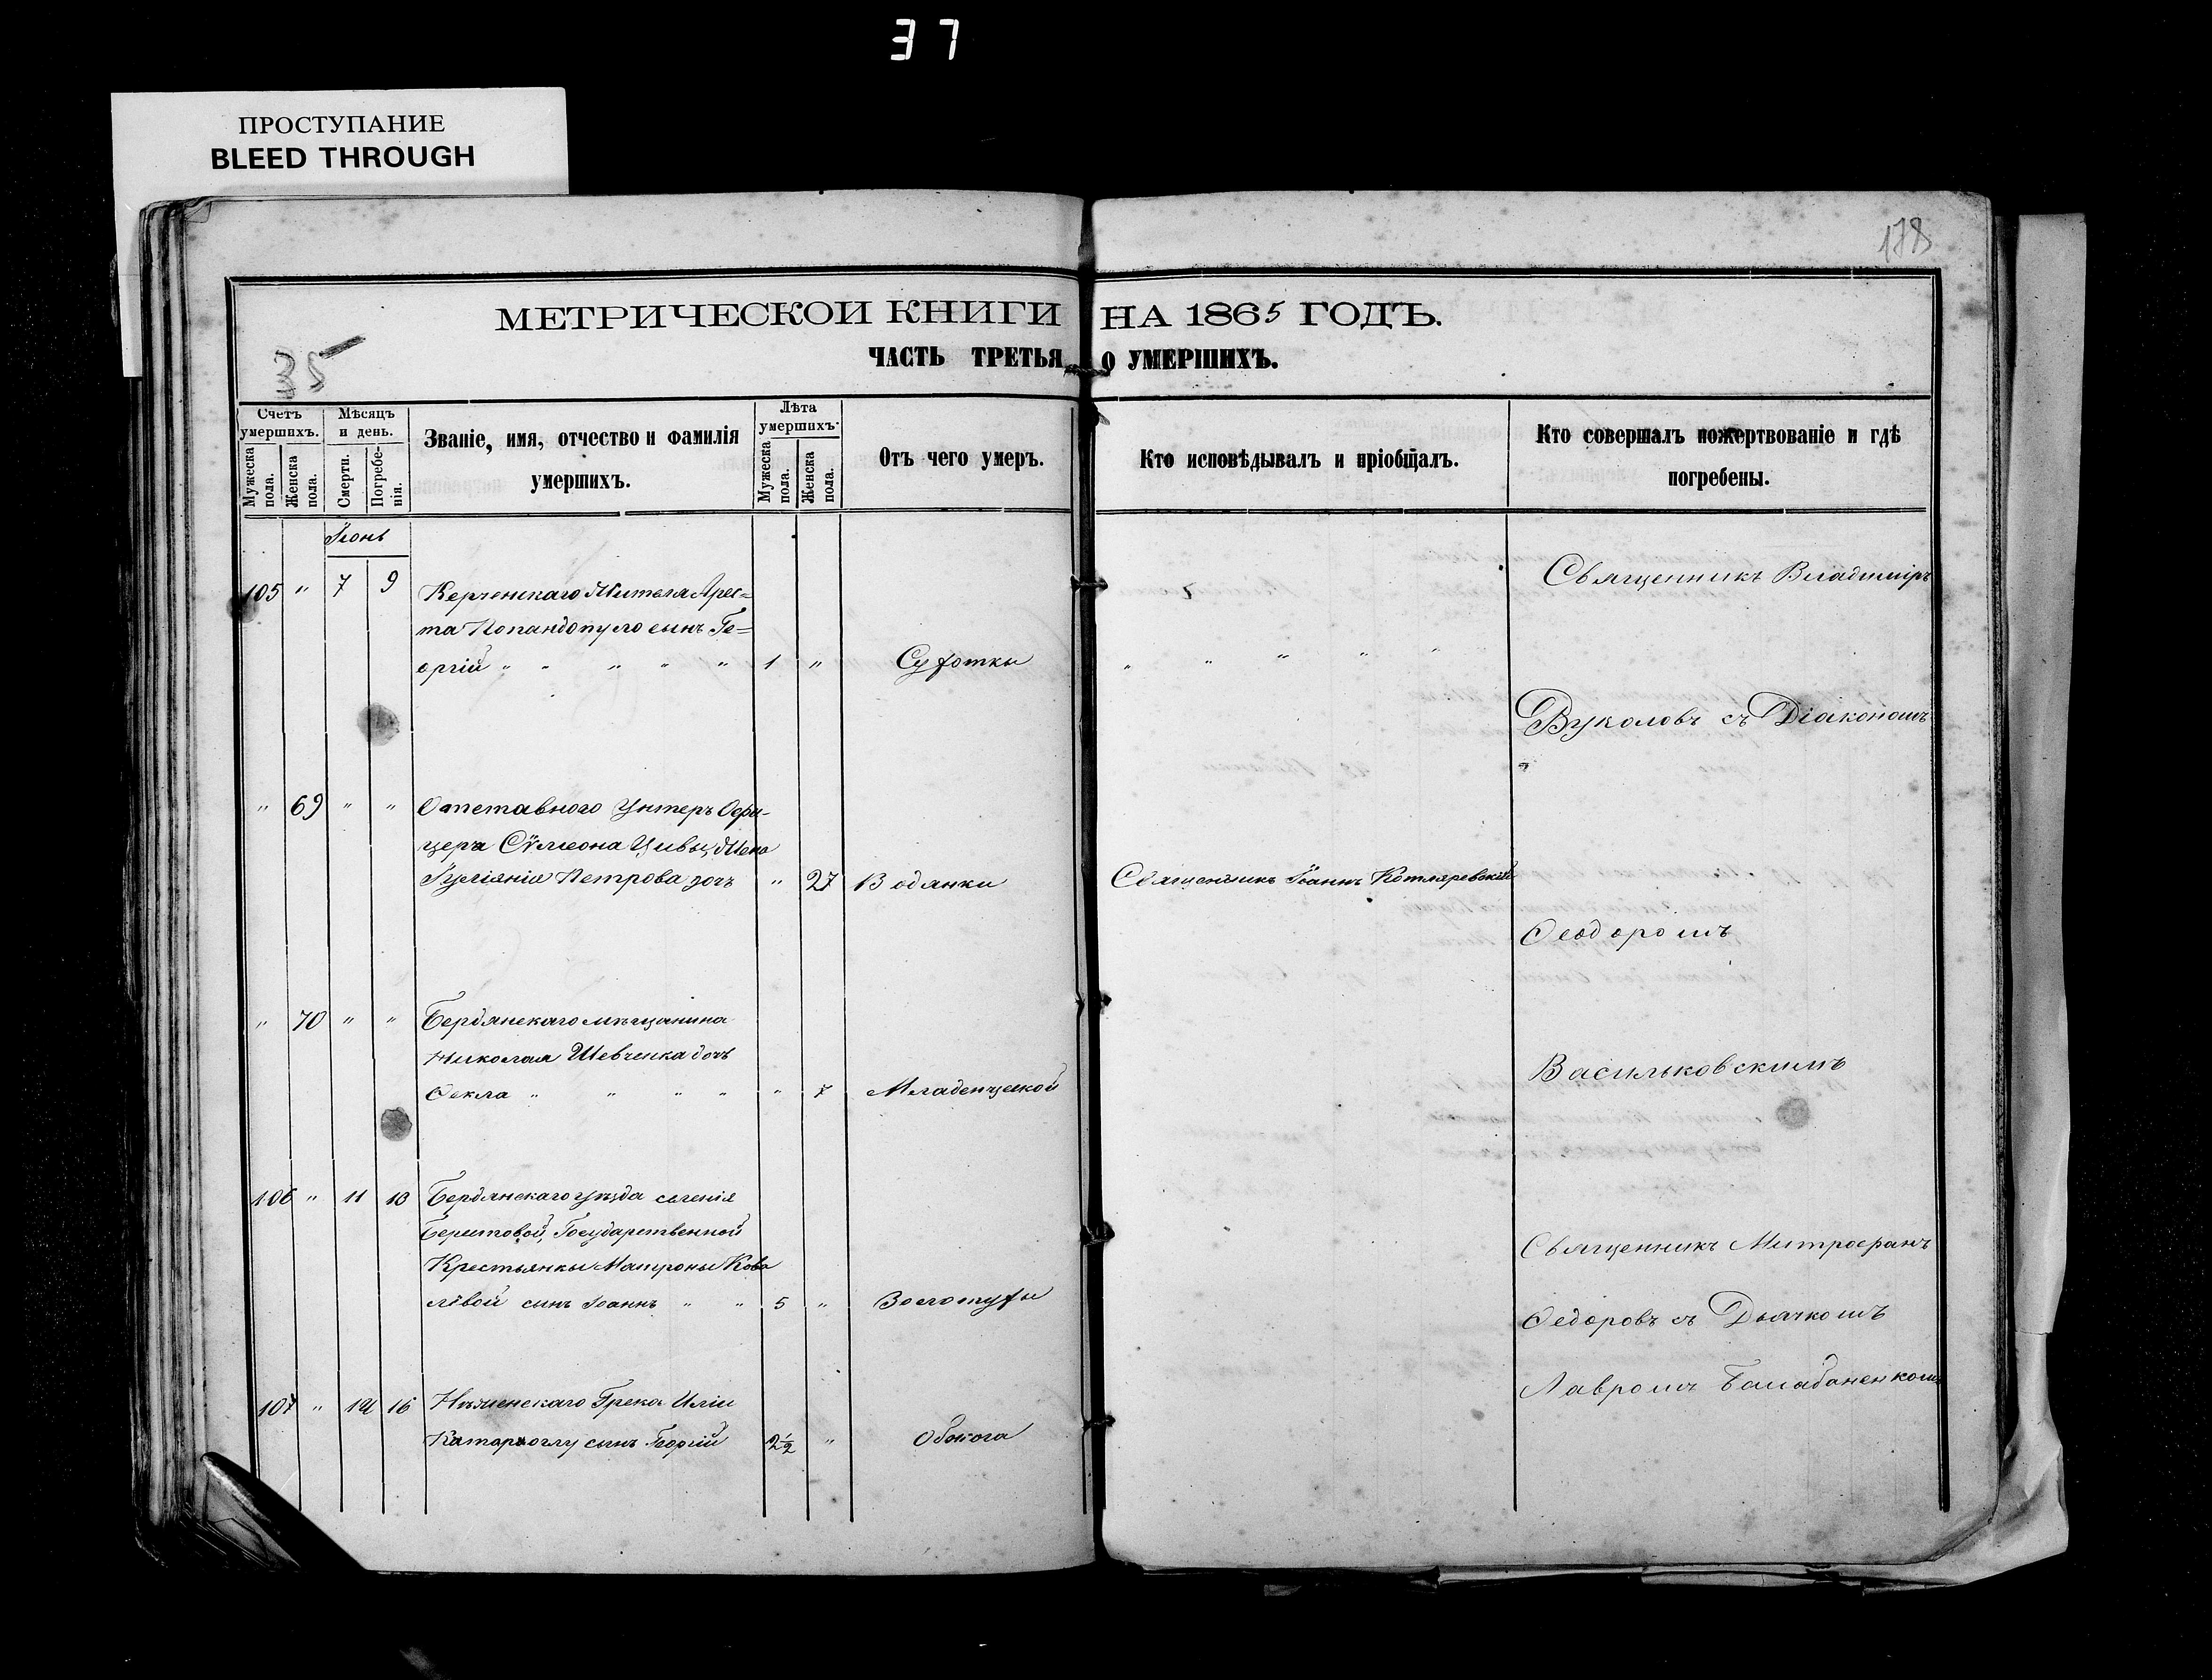 37
ПРОСТУПАНИЕ
BLEED THROUGH
178
МЕТРИЧЕСКОЙ КНИГИ НА 1865 ГОДЪ.
35
ЧАСТЬ ТРЕТЬЯ, О УМЕРШИХЪ.
Счетъ умершихъ.
Мужеска пола.
Женска пола.
Мѣсяцъ и день.
Смерти.
Погребенія.
Званіе, имя, отчество и фамилія умершихъ.
Лѣта умершихъ.
Мужеска пола.
Женска пола.
Отъ чего умеръ.
Кто исповѣдывалъ и пріобщалъ.
Кто совершалъ пожертвованіе и гдѣ погребены.
Іюнь
105 " 7 9 Керченскаго Жителя Арес=
та Попандопуло сынъ Ге=
оргій " " " " " 1 " Сухотки " " " " "
Священникъ Владиміръ
Вуколовъ съ Діакономъ
" 69 " " Отставного Унтеръ Офи-
цера Сѵмеона Цивы, Жена
Іуліянія Петрова дочь " 27 Водянки Священникъ Іоаннъ Котляревскій
Ѳеодоромъ
" 70 " " Бердянскаго мѣщанина
Николая Шевченка дочь
Ѳекла " " " " " 7 Младенческой
Васильковскимъ
106 " 11 13 Бердянскаго уѣзда селенія
Берестовой, Государственной
Крестьянки Матроны Кова
лёвой сынъ Іоаннъ " " 5 " Золотухи
Священникъ Митрофанъ
Ѳедоровъ съ Дьячкомъ
Лавромъ Балабаненкомъ
107 " 16 Нѣженскаго Грека Иліи
сынъ Георгій 2½ " Обжога